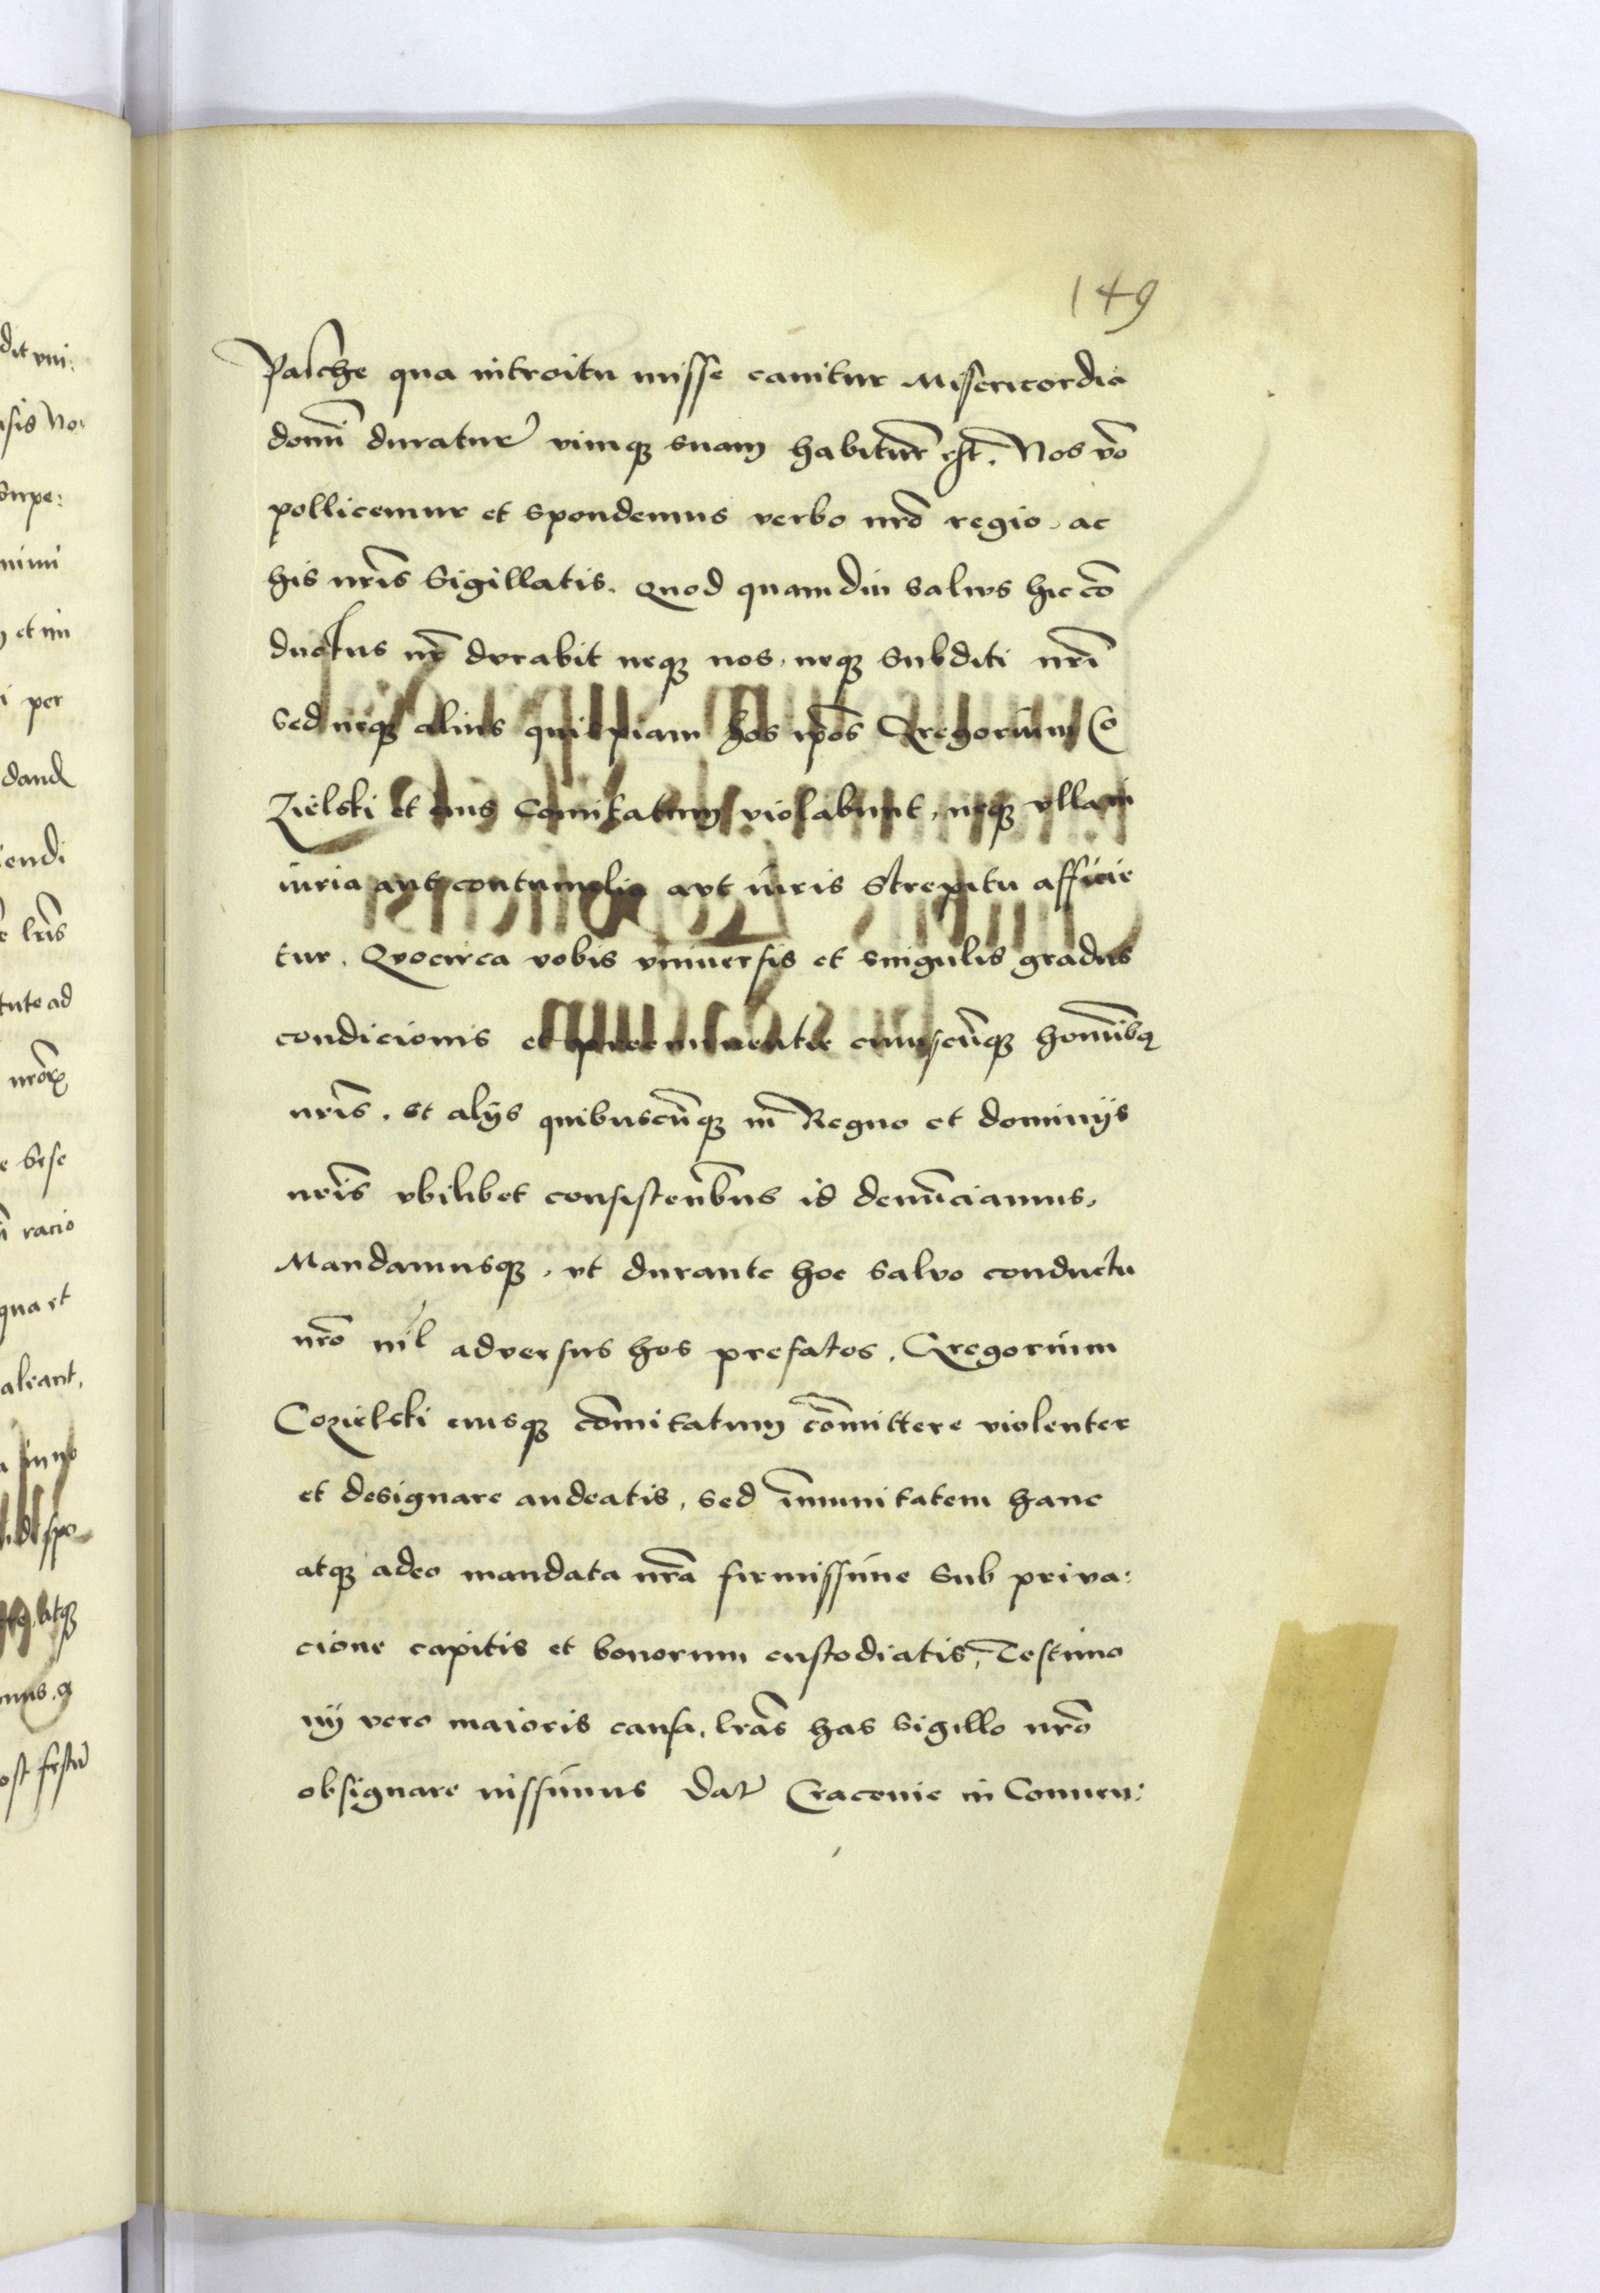 149
Pasche qua introitu misse canitur Misericordia
domi duratur vimq suam habitur est. Nos vo
pollicemur et spondemus verbo nro regio ac
his nris Sigillatis. Quod quamdiu salvus hic co
ductus nr durabit neq nos, neq Subditi nri
sed neq alius quispiam hos ipos Gregorium Co
Zielski et eius Comitatum violabunt, neq ullam
iuria aut contumelia aut iuris Strepitu afficie
tur. Quocirca vobis universis et singulis gradus
condicionis et preeminentie cuiuscunq hominibq
nris. et alys quibuscunq in Regno et dominijs
nris ubilibet consistenbus id denunciamus,
Mandamusq, ut durante hoc salvo conductu
nro nil adversus hos prefatos, Gregorium
Cozielski eiusq comitatum committere violenter
et designare audeatis, sed immunitatem hanc
atq adeo mandata nra firmissime Sub priva:
cione capitis et bonorum custodiatis, Testimo
nij vero maioris causa, lras has sigillo nro
obsignare iussimus Dat Cracovie in Conuen:
dit vni:
nsis No
Supe:
et im
i per
dand
iendi
lris
tute ad
nror
e sese
racio
qua et
aleant,
spo
atq
ost festu